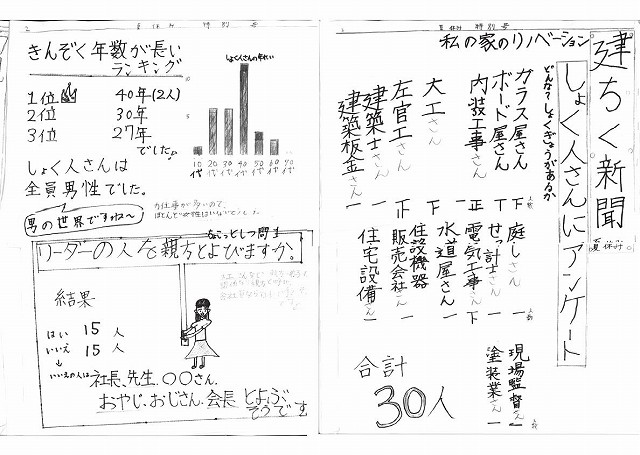 夏休み 特別号
建ちく新聞
夏休み
しょく人さんにアンケート
私の家のリノベーション
どんな？しょくぎょうがあるか
ガラス屋さん 下
ボード屋さん 下
内装工事さん 正
大工さん 下
左官工さん 正
建築士さん 一
建築板金さん 一
庭しさん 一
せっ計士さん 一
電気工事さん 下
水道屋さん 一
住設機器
販売会社さん 一
住宅設備さん 一
現場監督さん 一
塗装業さん 一
合計
30人
夏休み 特別号
きんぞく年数が長い
ランキング
1位 40年(2人)
2位 30年
3位 27年
でした。
しょく人さんの年れい
10代 20代 30代 40代 50代 60代 70代
しょく人さんは
全員男性でした。
男の世界ですね〜
力仕事が多いので、
ほとんど女性はいないでした。
なっとくしつ問1
リーダーの人を親方とよびますか。
結果
はい 15人
いいえ 15人
↓
いいえの人は 社長、先生、〇〇さん、
おやじ、おじさん、会長 とよぶ、
そうです